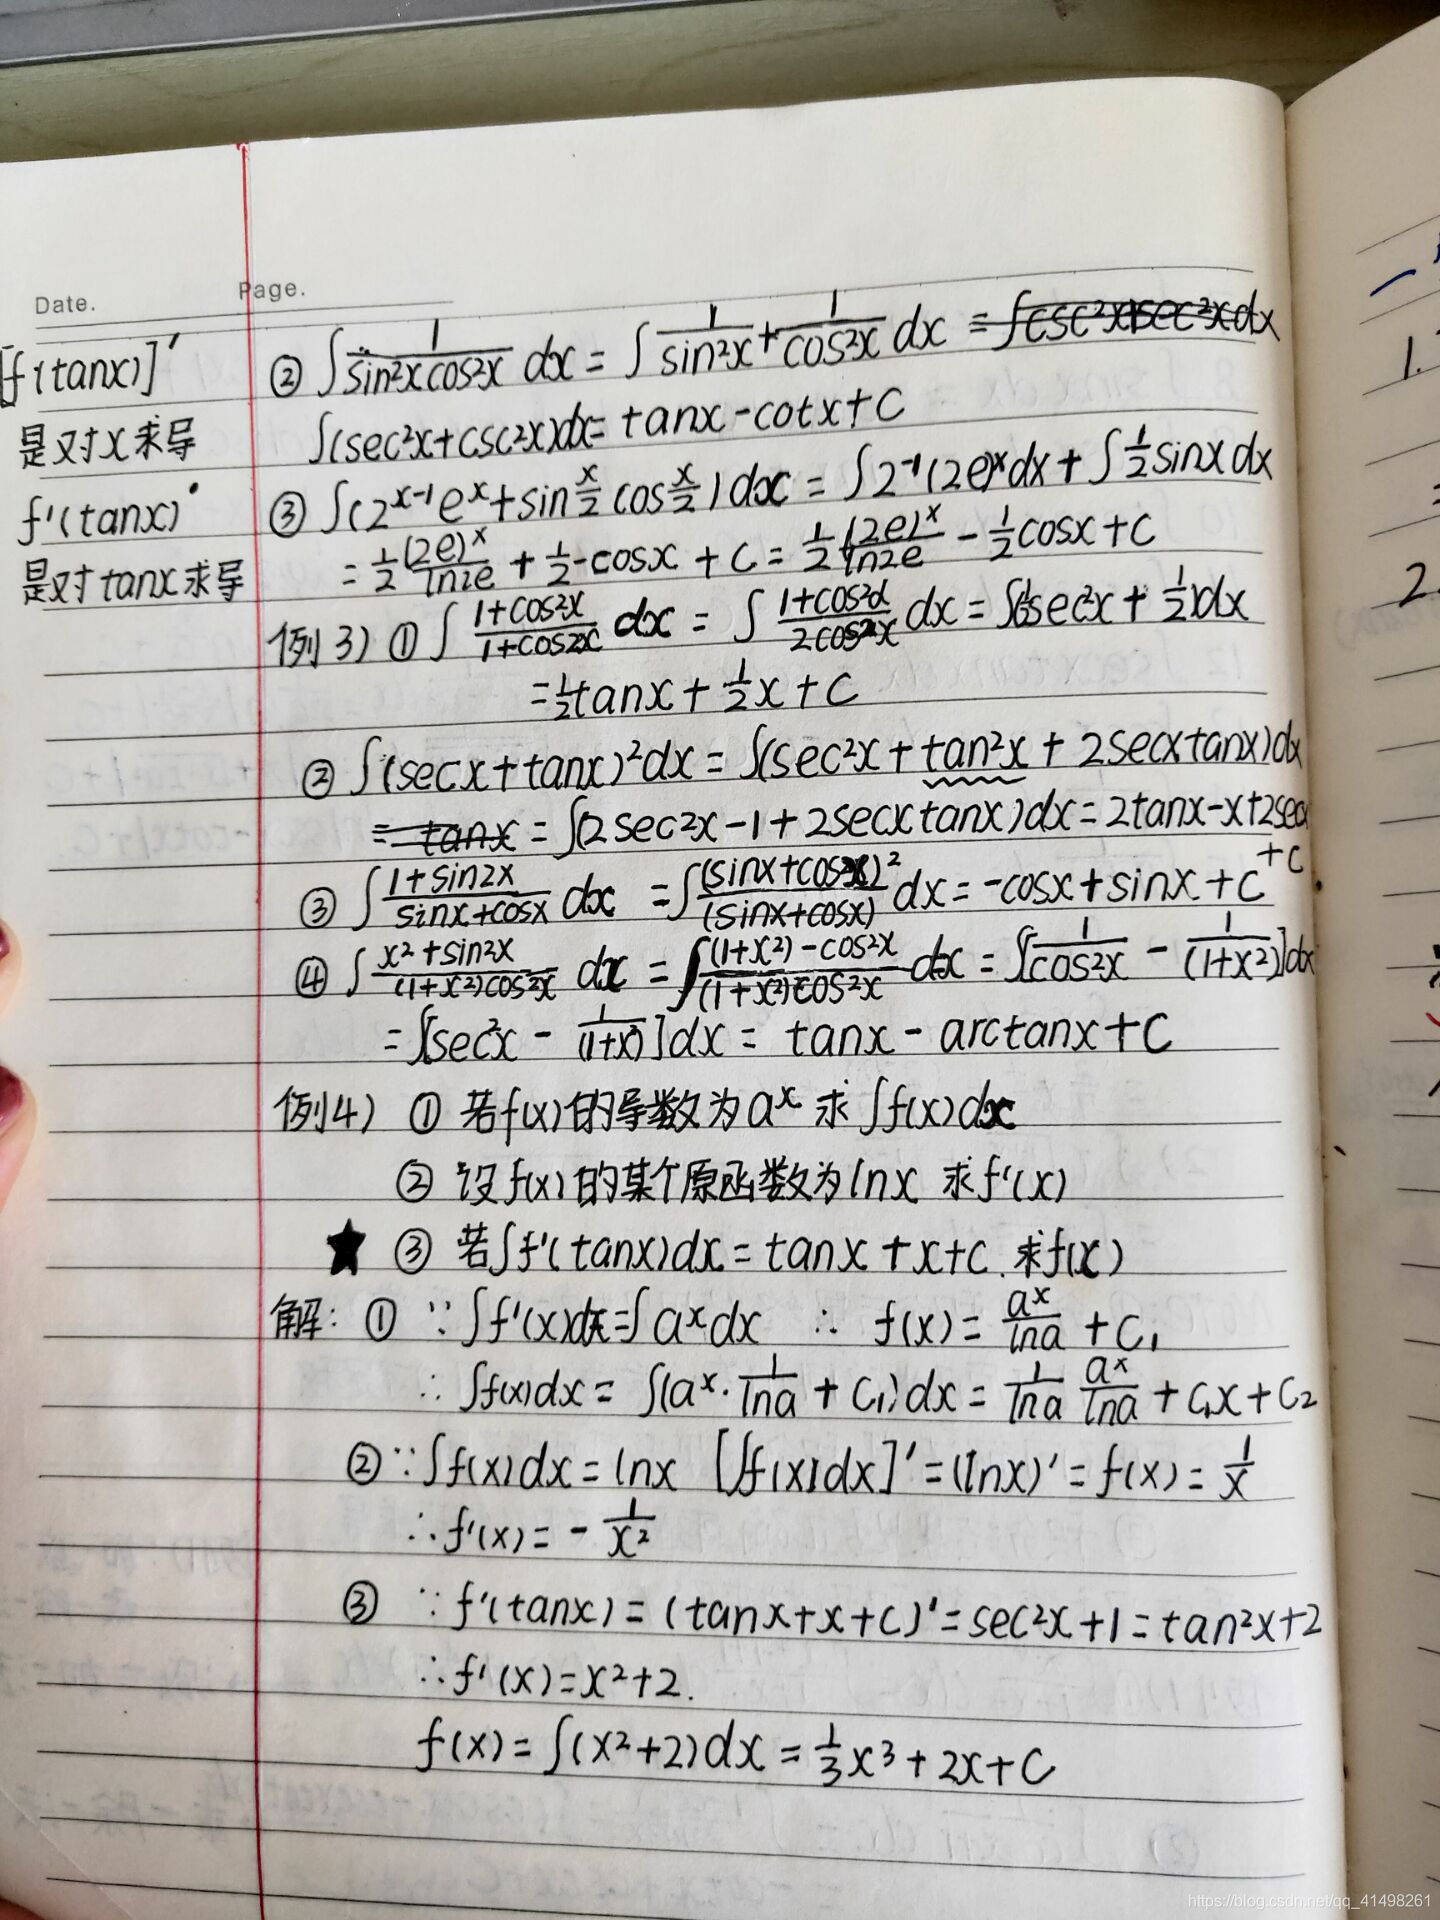 Date.
Page.
[f(tanx)]′
是对x求导
f′(tanx)
是对tanx求导
② ∫ 1/(sin²xcos²x) dx = ∫ 1/sin²x + 1/cos²x dx = ∫csc²x+sec²xdx
∫(sec²x+csc²x)dx= tanx-cotx+C
③ ∫(2^(x-1) e^x + sin x/2 cos x/2) dx = ∫2⁻¹(2e)^x dx + ∫ 1/2 sinx dx
= 1/2 (2e)^x/ln2e + 1/2 -cosx + C = 1/2 (2e)^x/ln2e - 1/2 cosx + C
例3) ① ∫ (1+cos²x)/(1+cos2x) dx = ∫ (1+cos²x)/(2cos²x) dx = ∫(1/2 sec²x + 1/2)dx
= 1/2 tanx + 1/2 x + C
② ∫(secx+tanx)²dx = ∫(sec²x + tan²x + 2secxtanx)dx
= tanx = ∫(2sec²x-1+2secxtanx)dx = 2tanx-x+2secx
+C
③ ∫ (1+sin2x)/(sinx+cosx) dx = ∫ (sinx+cosx)²/(sinx+cosx) dx = -cosx+sinx+C
④ ∫ (x²+sin²x)/((1+x²)cos²x) dx = ∫ ((1+x²)-cos²x)/((1+x²)cos²x) dx = ∫[1/cos²x - 1/(1+x²)]dx
= ∫[sec²x - 1/(1+x²)]dx = tanx - arctanx + C
例4) ① 若f(x)的导数为a^x 求∫f(x)dx
② 设f(x)的某个原函数为lnx 求f′(x)
★ ③ 若∫f′(tanx)dx = tanx + x + C. 求f(x)
解: ① ∵∫f′(x)dx=∫a^x dx ∴ f(x) = a^x/lna + C₁
∴ ∫f(x)dx = ∫(a^x · 1/lna + C₁)dx = 1/lna a^x/lna + C₁x + C₂
② ∵∫f(x)dx = lnx [∫f(x)dx]′ = (lnx)′ = f(x) = 1/x
∴f′(x) = - 1/x²
③ ∵f′(tanx) = (tanx+x+C)′ = sec²x+1 = tan²x+2
∴f′(x)=x²+2.
f(x) = ∫(x²+2)dx = 1/3 x³ + 2x + C
1.
2.
https://blog.csdn.net/qq_41498261